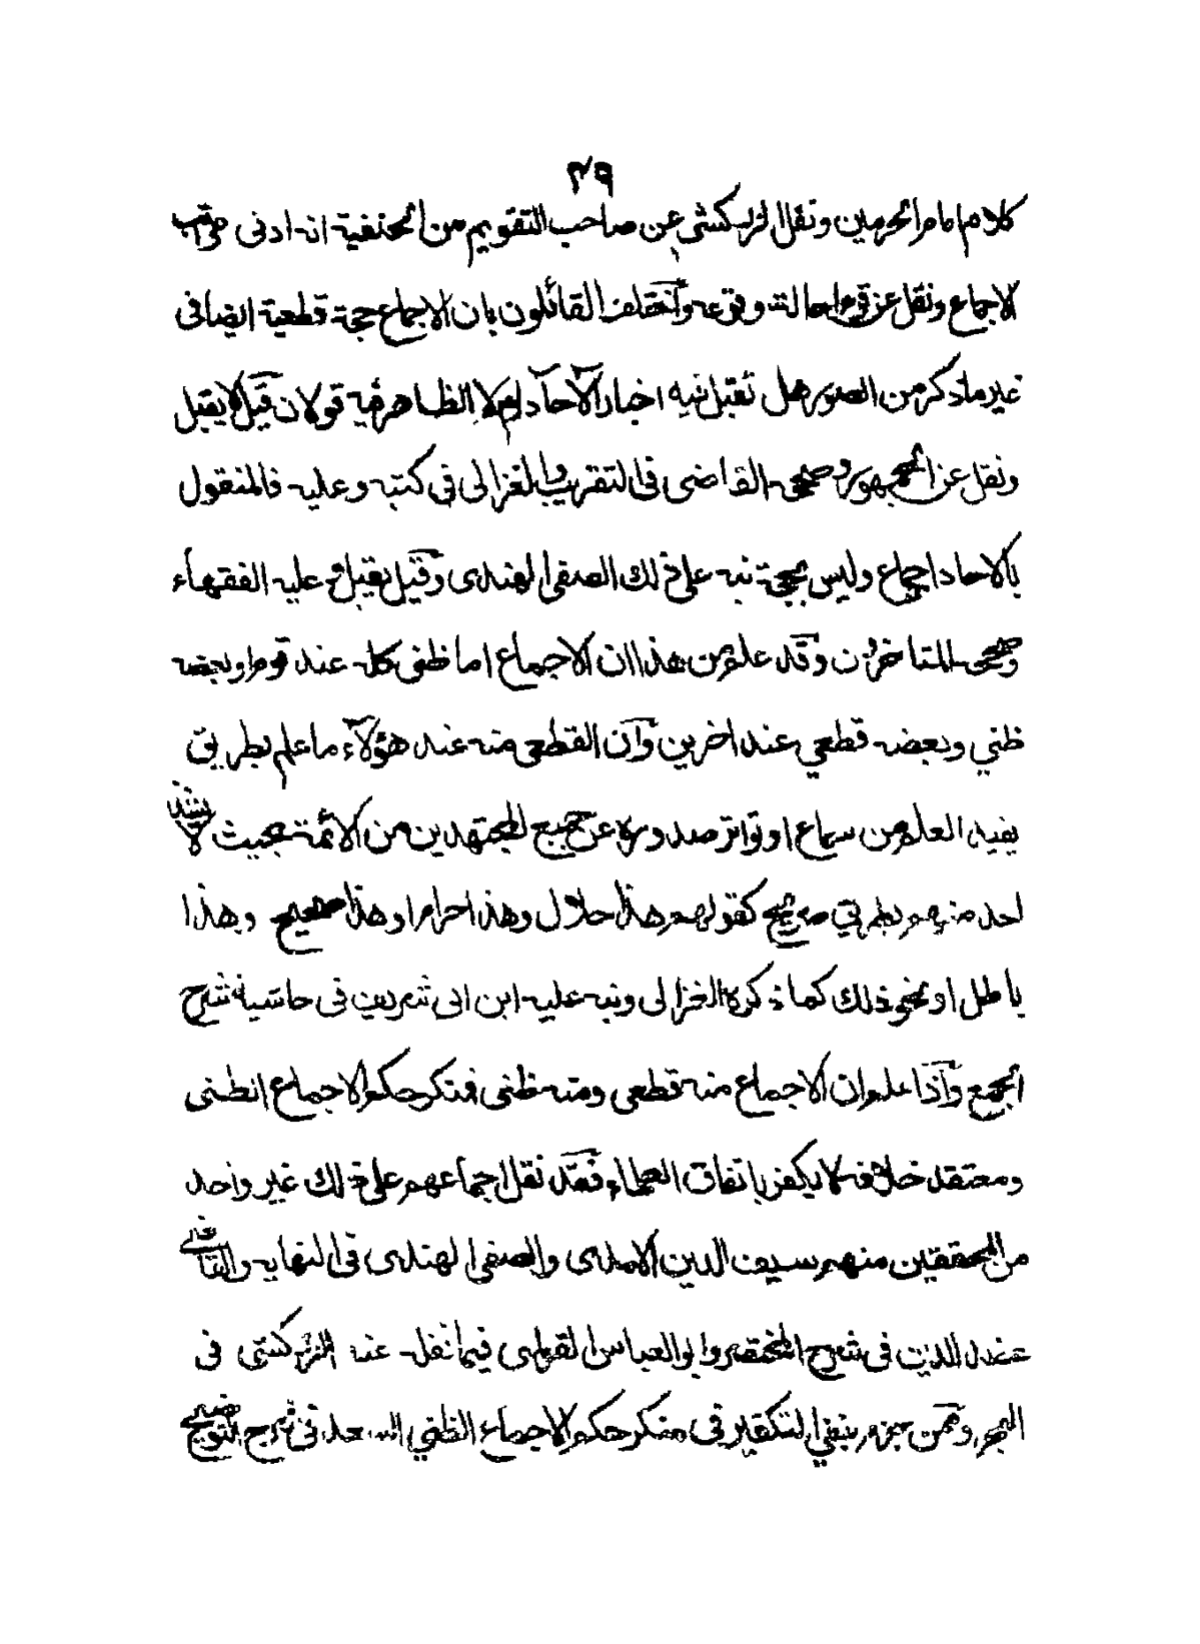 ٤٩
كلام امام الحرمين ونقل الزركشي عن صاحب التقويم من الحنفية انه ادنى مراتب
الاجماع ونقل عن قوم احالة وقوعه واختلف القائلون بان الاجماع حجة قطعية ايضا في
غير ما ذكر من الصور هل تقبل فيه اخبار الآحاد ام لا الظاهرفيه قولان قيل لا يقبل
ونقل عن الجمهور وصححه القاضى فى التقريب والغزالى فى كتبه وعليه فالمنقول
بالاحاد اجماع وليس بحجة نبه على ذلك الصفى الهندى وقيل يقبل وعليه الفقهاء
وصححه المتاخرون وقد علم من هذا ان الاجماع اما ظنى كله عند قوم او بعضه
ظني وبعضه قطعي عند اخرين وآن القطعى منه عند هؤلآء ما علم بطريق
يفيد العلم من سماع او تواتر صدوره عن جميع المجتهدين من الائمة بحيث لا يشذ
احد منهم بطريق صريح كقولهم هذا حلال وهذا حرام او هذا صحيح وهذا
باطل او نحو ذلك كما ذكره الغزالى ونبه عليه ابن ابى شريف فى حاشية شرح
الجمع وآذا علم ان الاجماع منه قطعى ومنه ظنى فمنكر حكم الاجماع الظنى
ومعتقد خلافه لا يكفر باتفاق العلماء فقد نقل اجماعهم على ذلك غير واحد
من المحققين منهم سيف الدين الامدى والصفى الهندى فى النهاية والقاضى
عضد الدين فى شرح المختصر وابو العباس القرطبى فيما نقله عنه الزركشى فى
البحر وممن جزم بنفى التكفير فى منكر حكم الاجماع الظني السعد فى شرح التوضيح